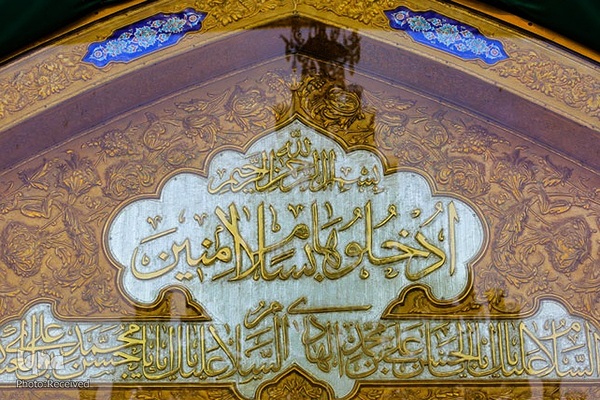 بسم الله الرحمن الرحيم
اُدْخُلُوهَا بِسَلَامٍ آمِنِينَ
السلام عليك يا ابا الحسن علي بن محمد الهادي السلام عليك يا ابا محمد حسن بن علي
Photo:Received